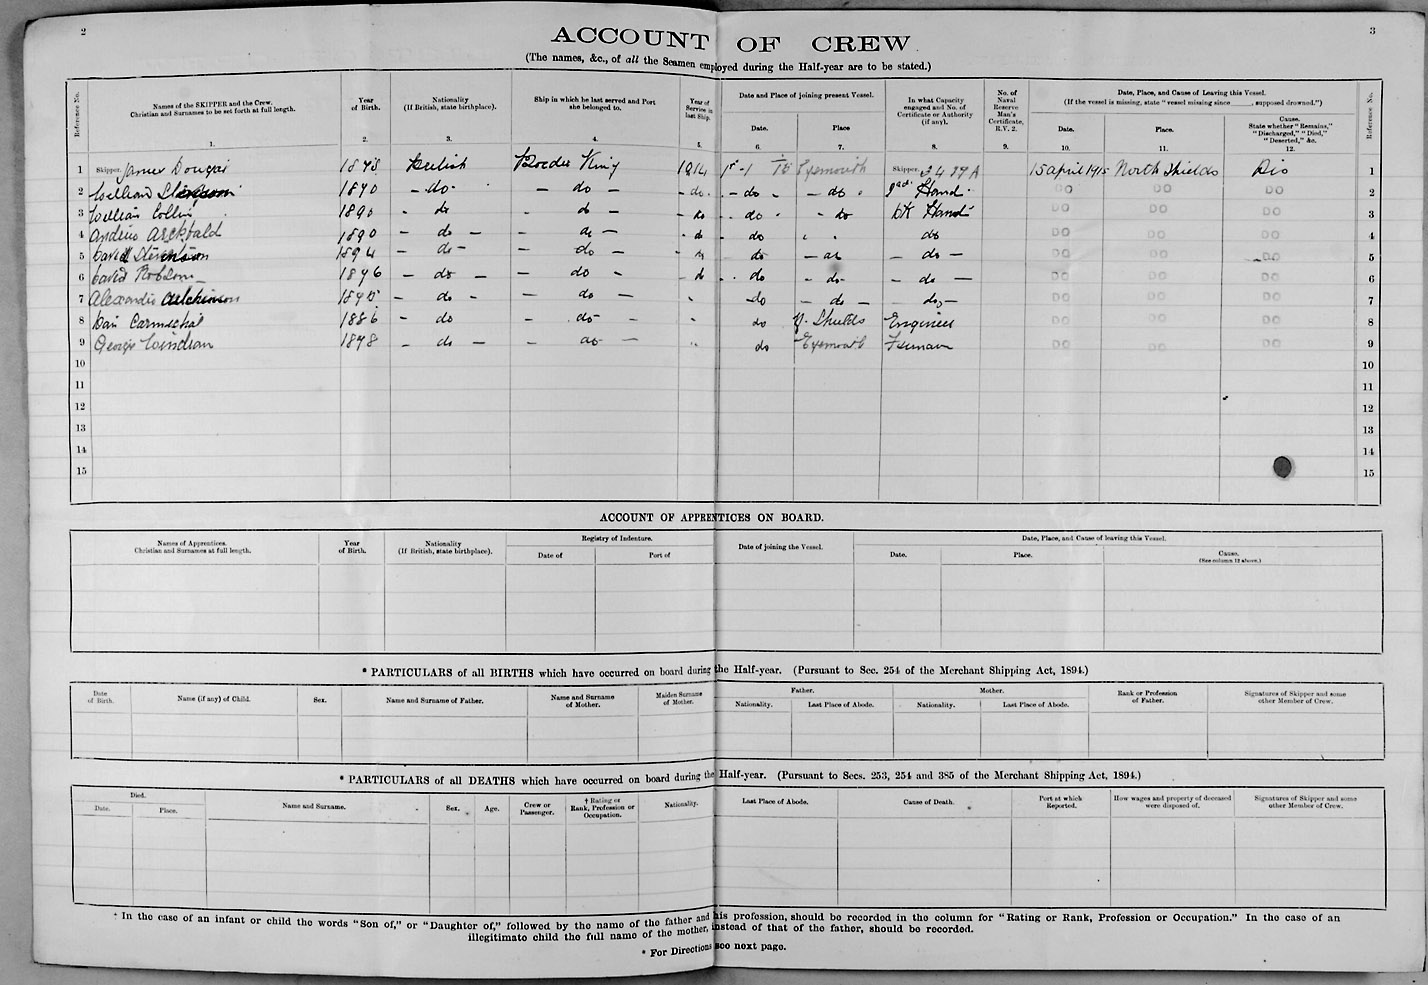 2
3
ACCOUNT OF CREW
(The names, &c., of all the Seamen employed during the Half-year are to be stated.)
Reference No. Names of the SKIPPER and the Crew. Christian and Surnames to be set forth at full length. Year of Birth. Nationality (If British, state birthplace). Ship in which he last served and Port she belonged to. Year of Service in last Ship. Date and Place of joining present Vessel. In what Capacity engaged and No. of Certificate or Authority (if any). No. of Naval Reserve Man's Certificate, R.V. 2. Date, Place, and Cause of Leaving this Vessel. (If the vessel is missing, state "vessel missing since ____, supposed drowned.") Reference No.
Date. Place Date. Place. Cause. State whether "Remains," "Discharged," "Died," "Deserted," &c.
1. 2. 3. 4. 5. 6. 7. 8. 9. 10. 11. 12.
1 Skipper. James Dougal 1878 British King 1914 1st - 1 - 15 Eyemouth Skipper. 15 April 1915 North Shields Dis 1
2 William 1890 - do - - do - - do - - do - - do - Hand DO DO DO 2
3 William Collin 1890 - do - do - - do - do - do Hand DO DO DO 3
4 Andrew 1890 - do - - do - - do - do do DO DO DO 4
5 David 1894 - do - - do - do - do - do - DO DO DO 5
6 David Robson 1896 - do - - do - - do - do - do - - do - DO DO DO 6
7 Alexander Aitchison - do - - do - - do - do - - do - DO DO DO 7
8 Carmichal 1886 - do - do - do N. Shields Engineer DO DO DO 8
9 George Windram 1898 - do - - do - do Eyemouth Fireman DO DO DO 9
10 10
11 11
12 12
13 13
14 14
15 15
ACCOUNT OF APPRENTICES ON BOARD.
Names of Apprentices. Christian and Surnames at full length. Year of Birth. Nationality (If British, state birthplace). Registry of Indenture. Date of joining the Vessel. Date, Place, and Cause of leaving this Vessel.
Date of Port of Date. Place. Cause. (See column 12 above.)
* PARTICULARS of all BIRTHS which have occurred on board during the Half-year. (Pursuant to Sec. 254 of the Merchant Shipping Act, 1894.)
Date of Birth. Name (if any) of Child. Sex. Name and Surname of Father. Name and Surname of Mother. Maiden Surname of Mother. Father. Mother. Rank or Profession of Father. Signatures of Skipper and some other Member of Crew.
Nationality. Last Place of Abode. Nationality. Last Place of Abode.
* PARTICULARS of all DEATHS which have occurred on board during the Half-year. (Pursuant to Secs. 253, 254 and 385 of the Merchant Shipping Act, 1894.)
Died. Name and Surname. Sex. Age. Crew or Passenger. † Rating or Rank, Profession or Occupation. Nationality. Last Place of Abode. Cause of Death. Port at which Reported. How wages and property of deceased were disposed of. Signatures of Skipper and some other Member of Crew.
Date. Place.
† In the case of an infant or child the words "Son of," or "Daughter of," followed by the name of the father and his profession, should be recorded in the column for "Rating or Rank, Profession or Occupation." In the case of an
illegitimate child the full name of the mother, instead of that of the father, should be recorded.
* For Directions see next page.